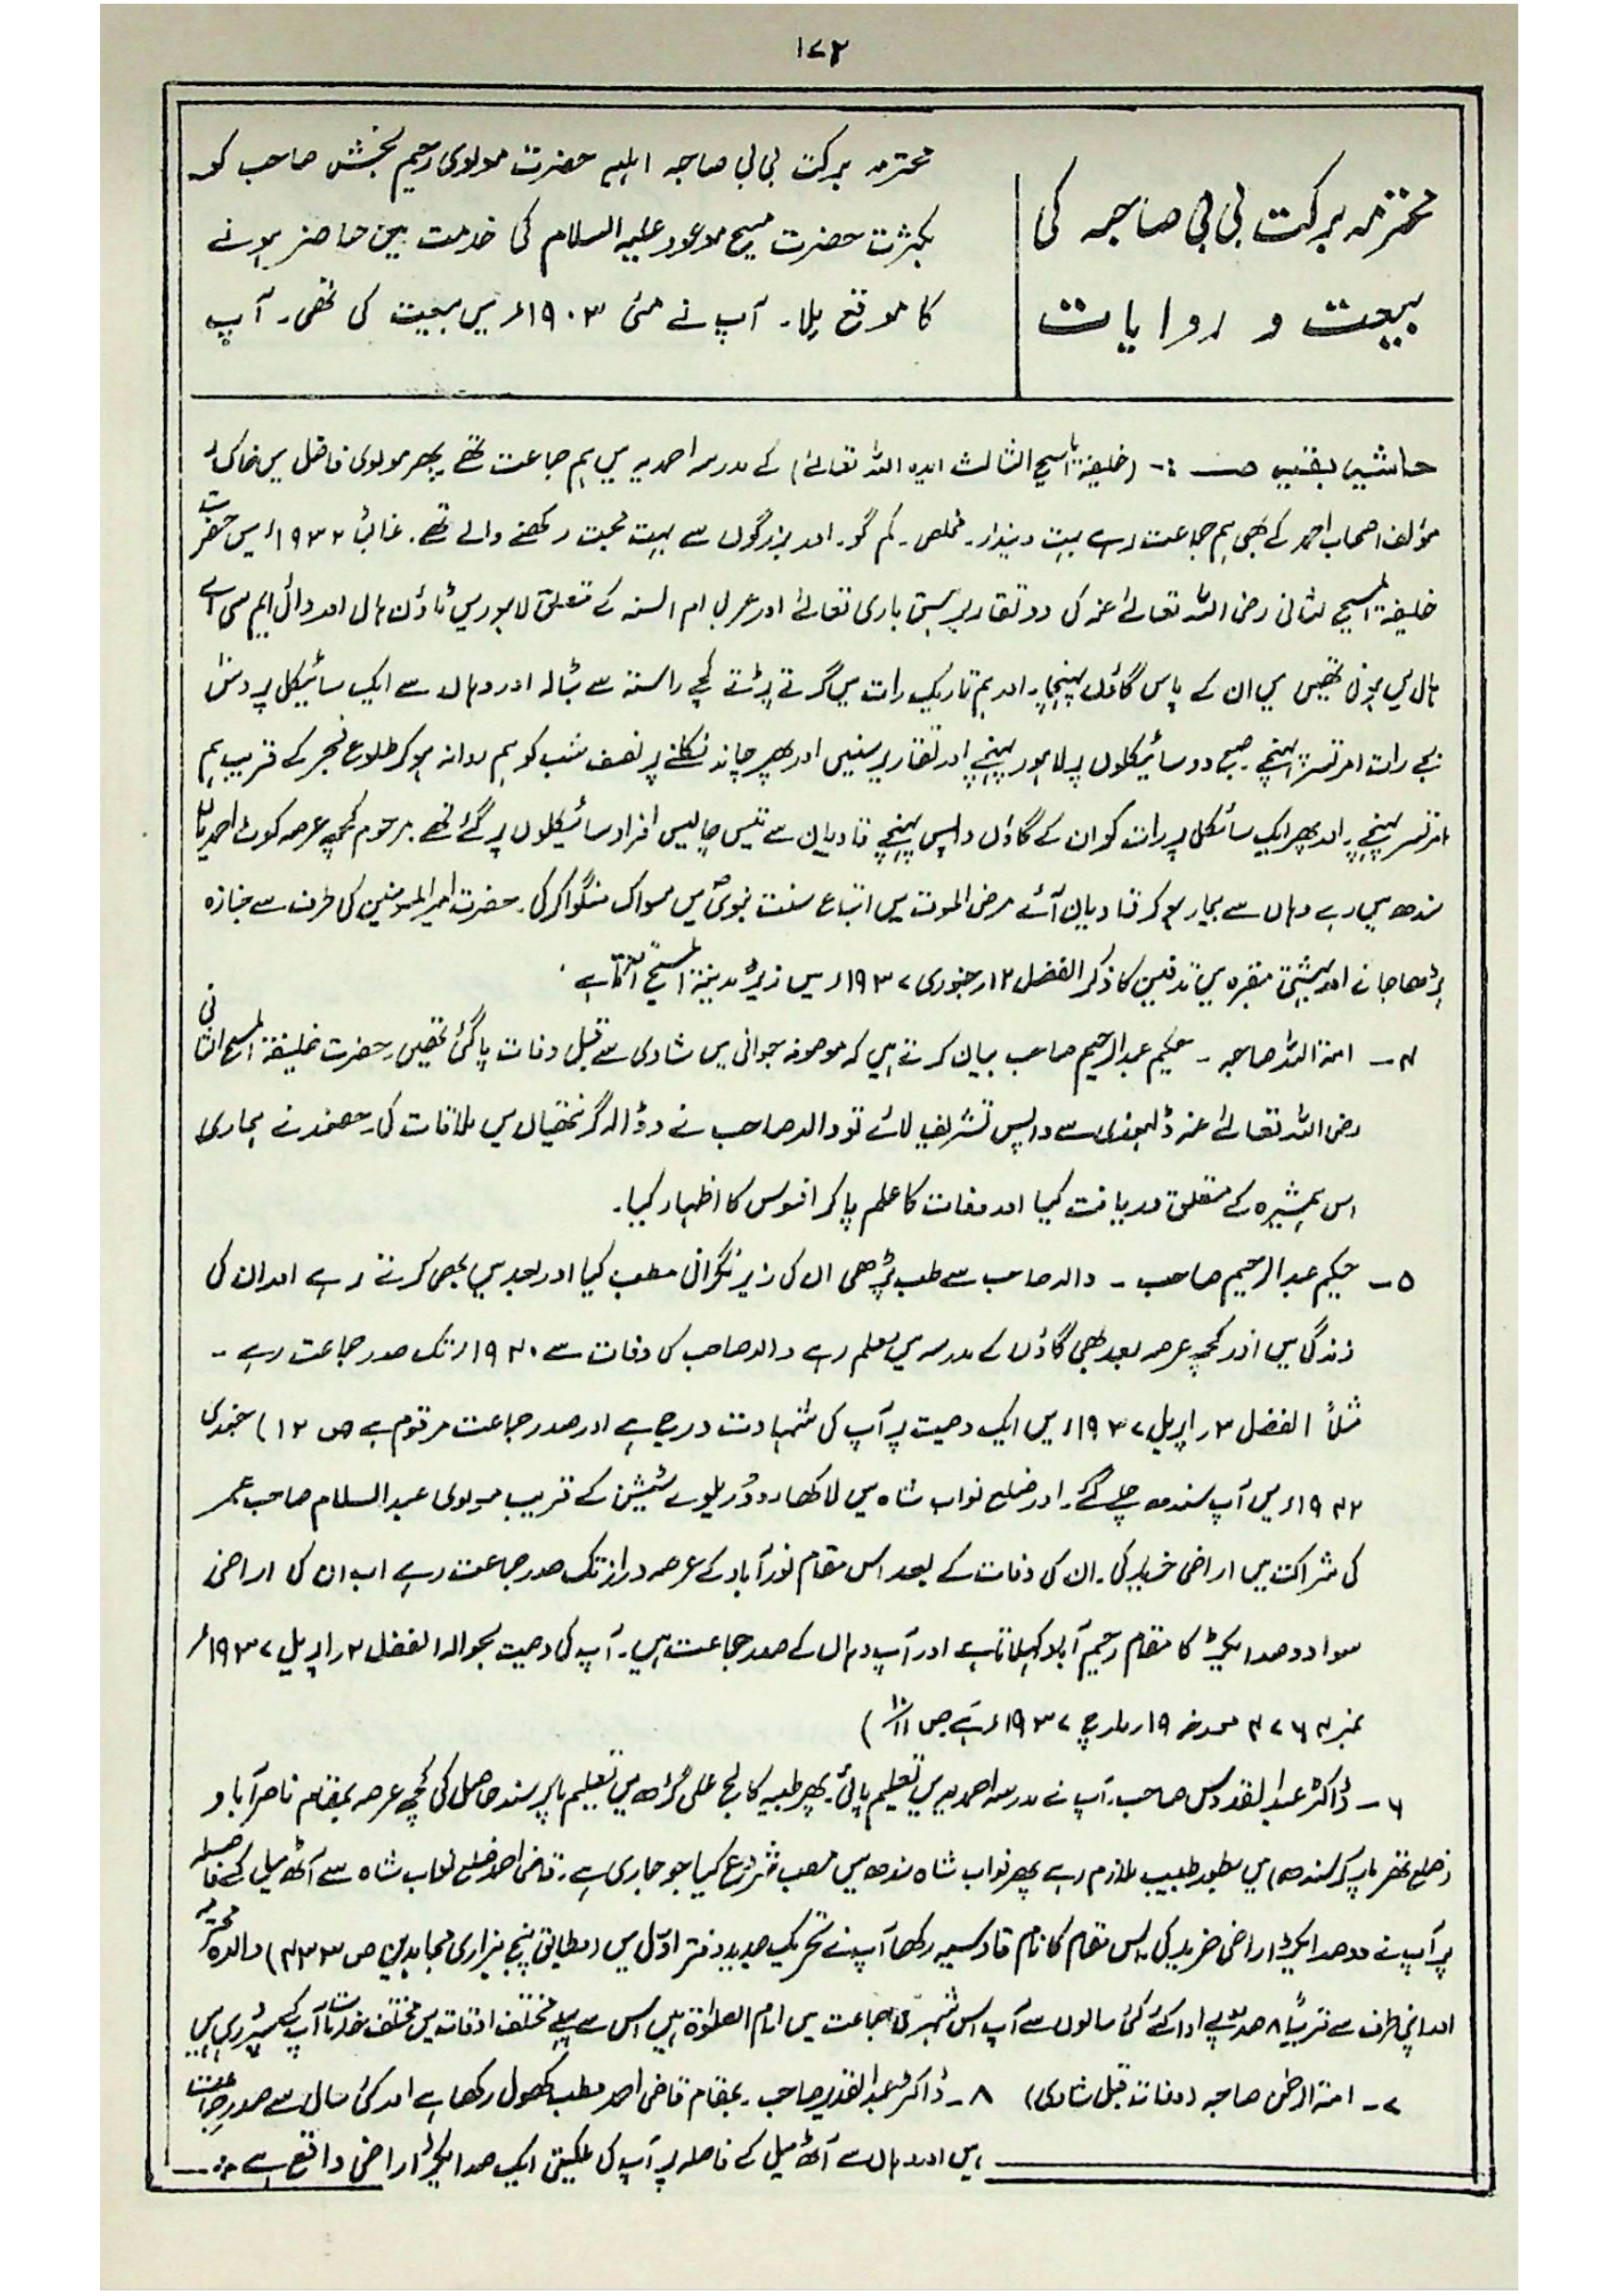 ۱۷۲
محترمہ برکت بی بی صاحبہ کی
بیعت و روایات
محترمہ برکت بی بی صاحبہ اہلیہ حضرت مولوی رحیم بخش صاحب کو
بکثرت حضرت مسیح موعود علیہ السلام کی خدمت میں حاضر ہونے
کا موقع ملا۔ آپ نے مئی ۱۹۰۳ء میں بیعت کی تھی۔ آپ
حاشیہ بقیہ صـ :- (خلیفۃ المسیح الثالث ایدہ اللہ تعالےٰ) کے مدرسہ احمدیہ میں ہم جماعت تھے پھر مولوی فاضل میں خاکسار
مؤلف اصحاب احمد کے بھی ہم جماعت رہے بہت دیندار۔ مخلص۔ کم گو۔ اور بزرگوں سے بہت محبت رکھنے والے تھے۔ غالباً ۱۹۳۲ء میں حضرت
خلیفۃ المسیح الثانی رضی اللہ تعالےٰ عنہ کی دو تقاریر ہستی باری تعالےٰ اور عربی ام السنہ کے متعلق لاہور میں ٹاؤن ہال اور وائی ایم سی اے
ہال میں ہونی تھیں میں ان کے پاس گاؤں پہنچا۔ اور ہم تاریک رات میں گرتے پڑتے کچے راستہ سے بٹالہ اور وہاں سے ایک سائیکل پر دس
بجے رات امرتسر پہنچے۔ صبح دو سائیکلوں پر لاہور پہنچے اور تقاریر سنیں اور پھر چاند نکلنے پر نصف شب کو ہم روانہ ہو کر طلوع فجر کے قریب ہم
امرتسر پہنچے۔ اور پھر ایک سائیکل پر رات کو ان کے گاؤں واپس پہنچے قادیان سے تیس چالیس افراد سائیکلوں پر گئے تھے۔ مرحوم کچھ عرصہ کوٹ احمدیاں
سندھ میں رہے وہاں سے بیمار ہو کر قادیان آئے مرض الموت میں اتباع سنت نبویؐ میں مسواک منگوا کر کی۔ حضرت امیر المومنین کی طرف سے جنازہ
پڑھا جانے اور بہشتی مقبرہ میں تدفین کا ذکر الفضل ۱۲ر جنوری ۱۹۳۷ء میں زیر مدینۃ المسیح آتا ہے۔
۴۔ امۃ اللہ صاحبہ ۔ حکیم عبدالرحیم صاحب بیان کرتے ہیں کہ موصوفہ جوانی میں شادی سے قبل وفات پا گئی تھیں۔ حضرت خلیفۃ المسیح الثانی
رضی اللہ تعالےٰ عنہ ڈلہوزی سے واپس تشریف لائے تو والد صاحب نے دوڑالہ گر نتھیال میں ملاقات کی۔ حضور نے ہماری
اس ہمشیرہ کے متعلق دریافت کیا اور وفات کا علم پا کر افسوس کا اظہار کیا۔
۵۔ حکیم عبدالرحیم صاحب ۔ والد صاحب سے طب پڑھی ان کی زیر نگرانی مطب کیا اور بعد میں بھی کرتے رہے اور ان کی
زندگی میں اور کچھ عرصہ بعد بھی گاؤں کے مدرسہ میں معلم رہے والد صاحب کی وفات سے ۱۹۴۰ء تک صدر جماعت رہے ۔
مثلاً الفضل ۳ر اپریل ۱۹۳۷ء میں ایک وصیت پر آپ کی شہادت درج ہے اور صدر جماعت مرقوم ہے ص ۱۲) جنوری
۱۹۴۲ء میں آپ سندھ چلے گئے۔ اور ضلع نواب شاہ میں لاکھا روڈ ریلوے سٹیشن کے قریب مولوی عبدالسلام صاحب عمر
کی شراکت میں اراضی خرید کی۔ ان کی وفات کے بعد اس مقام نور آباد کے عرصہ دراز تک صدر جماعت رہے اب ان کی اراضی
سوا دو صد ایکڑ کا مقام رحیم آباد کہلاتا ہے اور آپ وہاں کے صدر جماعت ہیں۔ آپ کی وصیت بحوالہ الفضل ۲ر اپریل ۱۹۳۷ء
نمبر ۴۷۶۴ مورخہ ۱۹ر مارچ ۱۹۳۷ء ہے ص ۱۰/۱۱)
۶۔ ڈاکٹر عبدالقدوس صاحب۔ آپ نے مدرسہ احمدیہ میں تعلیم پائی۔ پھر طبیہ کالج علی گڑھ میں تعلیم پا کر سند حاصل کی کچھ عرصہ بمقام ناصر آباد
(ضلع تھرپارکر سندھ) میں بطور طبیب ملازم رہے پھر نواب شاہ سندھ میں مطب شروع کیا جو جاری ہے۔ قاضی احمد ضلع نواب شاہ سے آٹھ میل کے فاصلہ
پر آپ نے دو صد ایکڑ اراضی خرید کی۔ اس مقام کا نام قادسیہ رکھا آپ نے تحریک جدید دفتر اوّل میں (مطابق پنج ہزاری مجاہدین ص ۴۳۳) والدہ محترمہ
اور اپنی طرف سے قریباً ۸ صد روپے ادا کئے کئی سالوں سے آپ اس شہر کی جماعت میں امام الصلوٰۃ ہیں اس سے پہلے مختلف اوقات میں مختلف خدمات آپ کے سپرد رہی ہیں
۷۔ امۃ الرحمٰن صاحبہ (وفات قبل شادی) ۸۔ ڈاکٹر عبدالقدیر صاحب۔ بمقام قاضی احمد مطب کھول رکھا ہے اور کئی سال سے صدر جماعت
ہیں اور وہاں سے آٹھ میل کے فاصلہ پر آپ کی ملکیتی ایک صد ایکڑ اراضی واقع ہے ؞